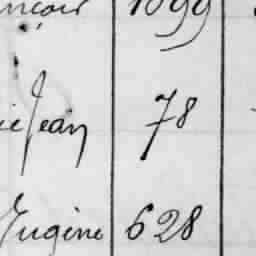 ançois 1099
ie Jean 78
Eugène 628